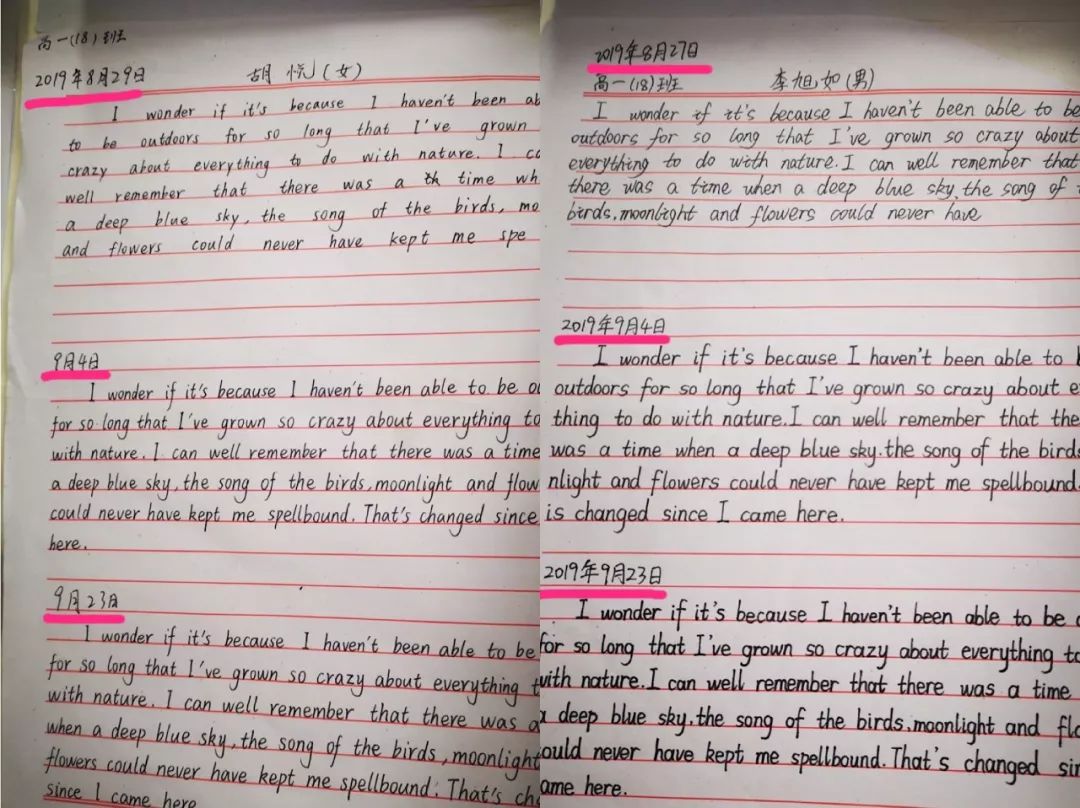 高一(18)班
2019年8月29日 胡悦(女)
I wonder if it's because I haven't been ab
to be outdoors for so long that I've grown
crazy about everything to do with nature. I co
well remember that there was a th time wh
a deep blue sky, the song of the birds, mo
and flowers could never have kept me spe
9月4日
I wonder if it's because I haven't been able to be ou
for so long that I've grown so crazy about everything to
with nature. I can well remember that there was a time
a deep blue sky, the song of the birds, moonlight and flow
could never have kept me spellbound. That's changed since
here.
9月23日
I wonder if it's because I haven't been able to be
for so long that I've grown so crazy about everything t
with nature. I can well remember that there was a
when a deep blue sky, the song of the birds, moonlight
flowers could never have kept me spellbound. That's ch
since I came here
2019年8月27日
高一(18)班 李旭如(男)
I wonder if it's because I haven't been able to be
outdoors for so long that I've grown so crazy about
everything to do with nature. I can well remember that
there was a time when a deep blue sky, the song of t
birds, moonlight and flowers could never have
2019年9月4日
I wonder if it's because I haven't been able to b
outdoors for so long that I've grown so crazy about e
thing to do with nature. I can well remember that the
was a time when a deep blue sky, the song of the birds
nlight and flowers could never have kept me spellbound.
is changed since I came here.
2019年9月23日
I wonder if it's because I haven't been able to be o
for so long that I've grown so crazy about everything to
with nature. I can well remember that there was a time
a deep blue sky, the song of the birds, moonlight and flo
ould never have kept me spellbound. That's changed sin
ame here.